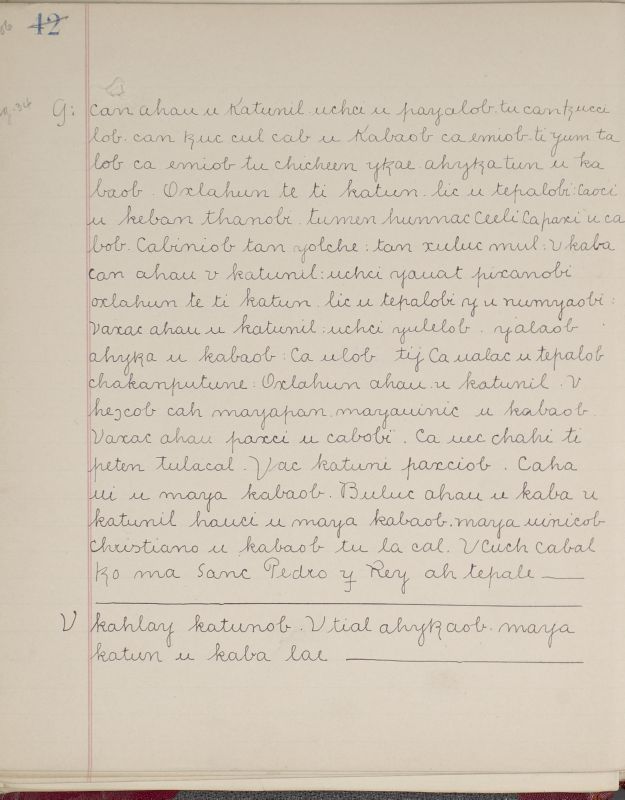 42
G: Can ahau u Katunil uchci u payalob. tu can kucci
lob. can kuc cul cab u Kabaob ca emiob ti yum ta
lob ca emiob tu chicheen ykae ahykatun u ka
baob. Oxlahun te ti katun lic u tepalobi: Caoci
u keban thanobi. tumen hunnac Ceeli Ca paxi u ca
bob. Cabiniob tan yolche: tan xuluc mul: V kaba
Can ahau v katunil: uchci yauat pixanobi
oxlahun te ti katun lic u tepalobi y u numyaobi:
Vaxac ahau u katunil: uchci yulelob. yalaob
ahyka u kabaob: Ca ulob tij Ca ualac u tepalob
chakanputune: Oxlahun ahau u katunil. V
heɔcob cah mayapan. mayauinic u kabaob.
Vaxac ahau paxci u cabobi. Ca uec chahi ti
peten tulacal. Vac katuni paxciob. Caha
ui u maya kabaob. Buluc ahau u kaba u
katunil hauci u maya kabaob. maya uinicob
christiano u kabaob tu la cal. V Cuch cabal
ko ma Sanc Pedro y Rey ah tepale
V kahlay katunob. V tial ahykaob. maya
katun u kaba lae